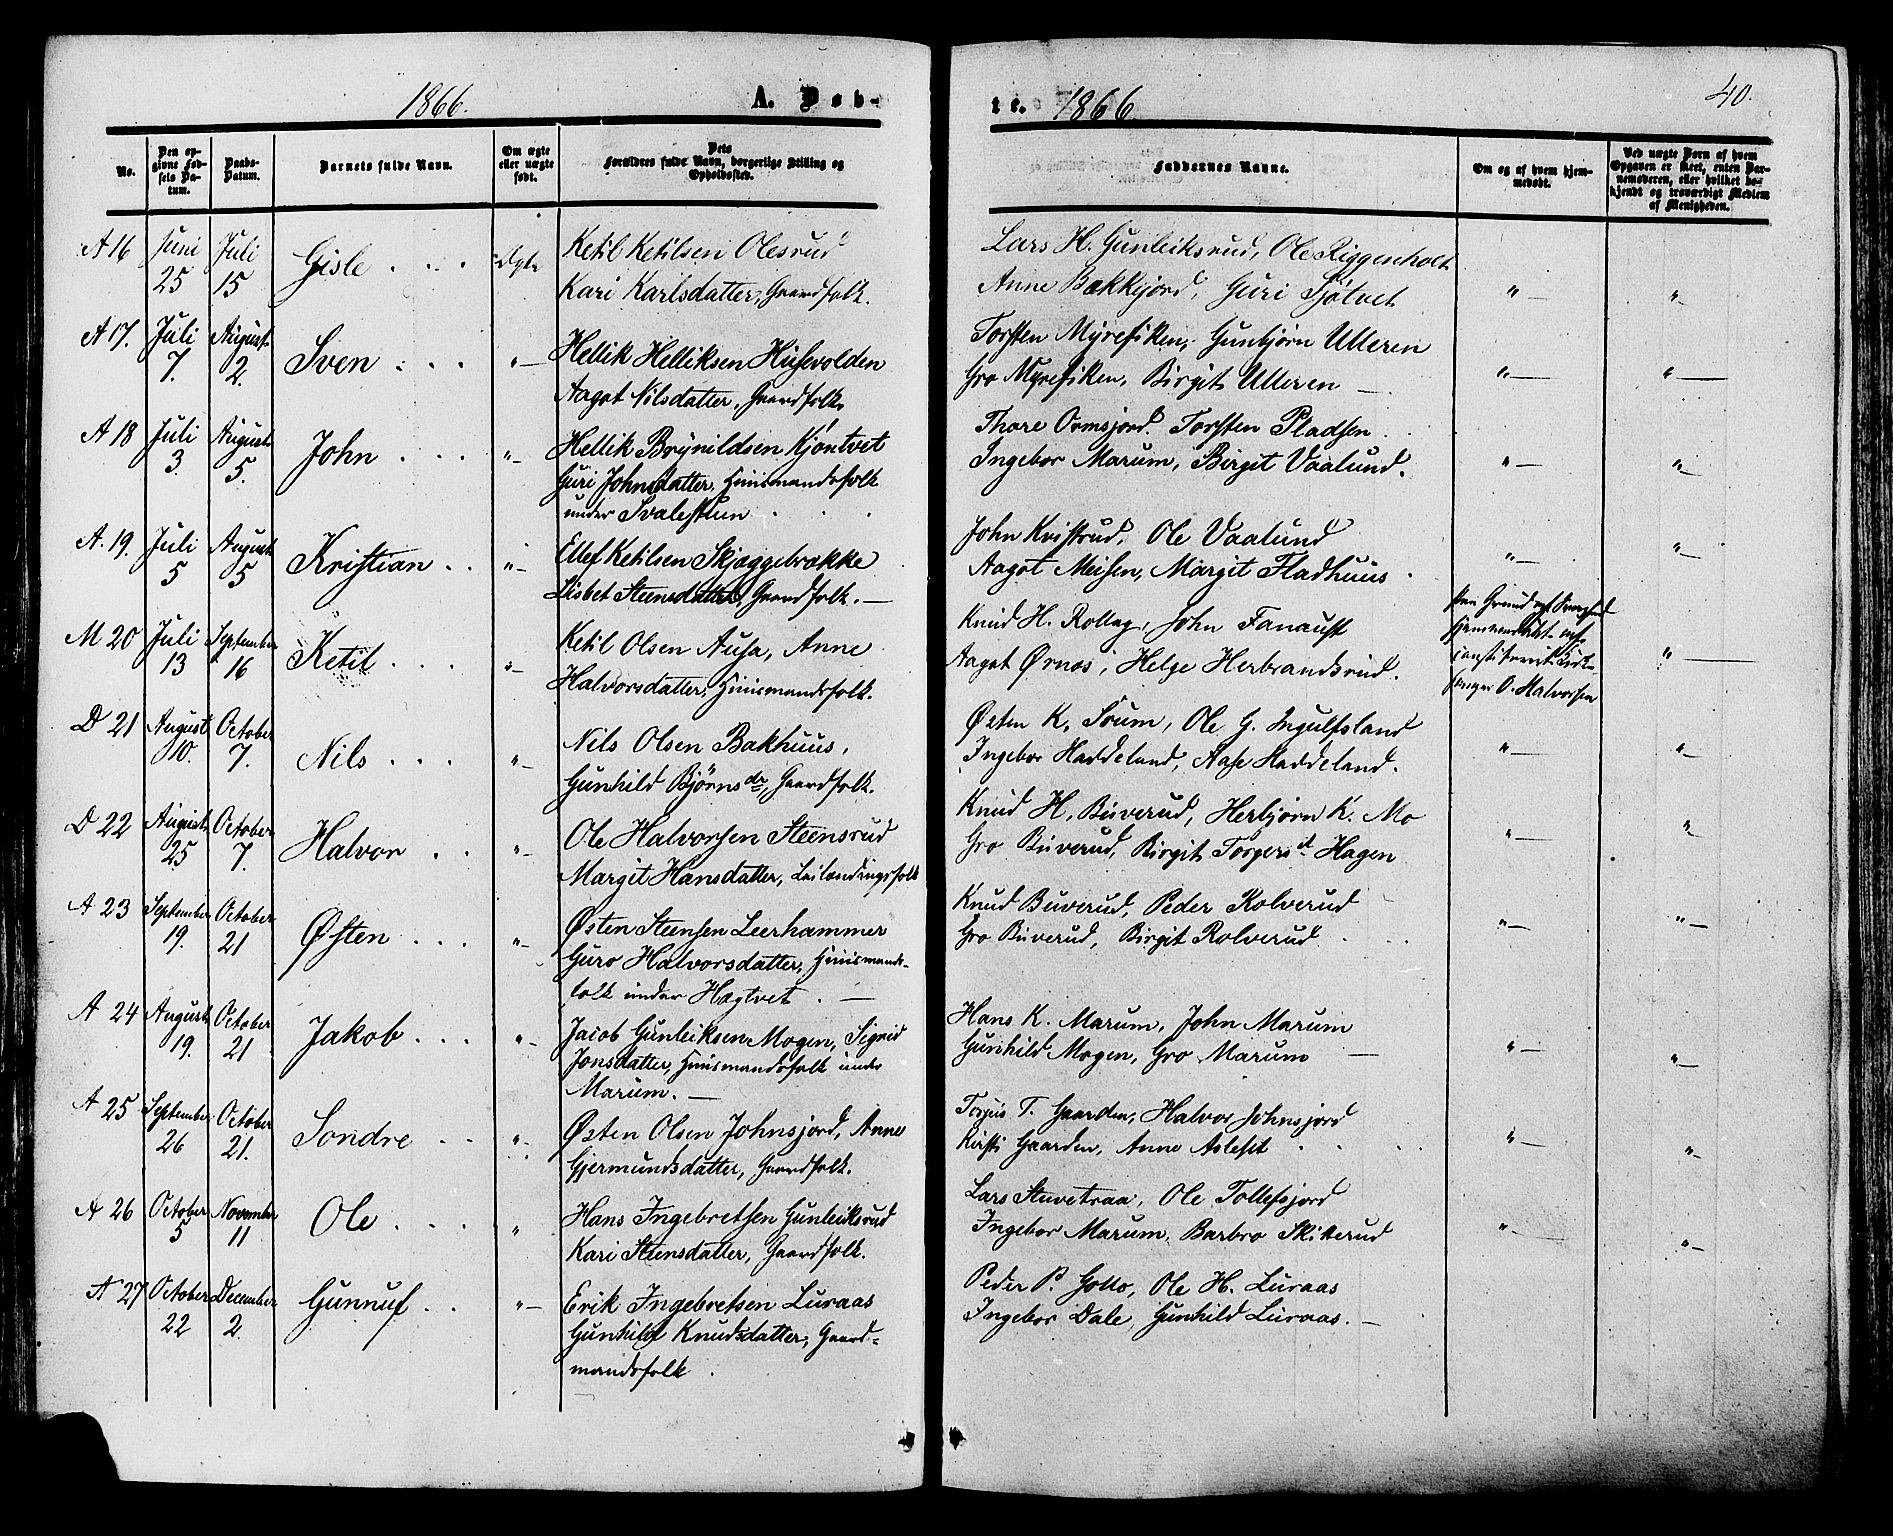 1866.
A. Døb-
te. 1866
40.
No.
Den opgivne Fødsels Datum.
Daabs-Datum.
Barnets fulde Navn.
Om ægte eller uægte født.
Dets Forældres fulde Navn, borgerlige Stilling og Opholdssted.
Faddernes Navne.
Om og af hvem hjemmedøbt.
Ved uægte Børn af hvem Opgaven er skeet, enten Barnemoderen, eller hvilket bekjendt og troværdigt Medlem af Menigheden.
A 16 Juni 25 Juli 15 Gisle . . . Ægte
Ketil Ketilsen Olesrud
Kari Karlsdatter, Gaardfolk.
Lars H. Gunleiksrud, Ole Riggenholt
Anne Bækkjord, Guri Sjøtvet
A 17. Juli 7. August 2. Sven . . . "—
Hellik Helliksen Husevolden
Aagot Nilsdatter, Gaardfolk
Torsten Myrefiken, Gunbjørn Ulleren
Gro Myrefiken, Birgit Ulleren —
A 18 Juli 3. August 5. John . . . "—
Hellik Brynildsen Kjøntvet
Guri Johnsdatter, Huusmandsfolk
under Svalestuen
Thore Ormsjord. Torsten Pladsen
Ingebor Marum, Birgit Vaalund.
A. 19. Juli 5 August 5 Kristian . . "—
Ellef Ketilsen Skjæggebrække
Lisbet Steensdatter, Gaardfolk. —
John Kvistrud, Ole Vaalund
Aagot Meisen, Margit Fladhuus
M 20 Juli 13 September 16 Ketil . . . "—
Ketil Olsen Ausa, Anne
Halvorsdatter, Huusmandsfolk.
Knud H. Rollag, John Fanaust
Aagot Ørnes, Helge Herbrandsrud.
paa Grund af Svaghed
hjemmedøbt af
constitueret Kirke-
sanger O. Halvorsen
D 21 August 10. October 7. Nils . . . "—
Nils Olsen Bakhuus,
Gunhild Bjørnsdr, Gaardfolk.
Østen K. Srum, Ole G. Ingulfsland
Ingebor Haddeland, Aase Haddeland.
D 22 August 25 October 7. Halvor . . "—
Ole Halvorsen Steensrud
Margit Hansdatter, Leilændingsfolk
Knud H. Buverud, Herbjørn K. Mo
Gro Buverud, Birgit Torgersd Hagen
A 23 September 19. October 21 Østen . . . "—
Østen Steensen Leerhammer
Guro Halvorsdatter, Huusmands-
folk under Hægtvet . —
Knud Buverud, Peder Rolverud
Gro Buverud, Birgit Rolverud
A 24 August 19. October 21 Jakob . . . "—
Jacob Gunleiksen Mogen, Sigrid
Jonsdatter, Huusmandsfolk under
Marum. —
Hans K. Marum, John Marum
Gunhild Mogen, Gro Marum —
A 25 September 26 October 21. Sondre . . "—
Østen Olsen Johnsjord, Anne
Gjermundsdatter, Gaardfolk.
Torjus T. Gaarden, Halvor Johnsjord
Kirsti Gaarden, Anne Aslefet
A 26 October 5 November 11 Ole . . . "
Hans Ingebretsen Gunleiksrud
Kari Steensdatter, Gaardfolk.
Lars Stuvetraa, Ole Tollefsjord
Ingebor Marum, Barbro Skitterud
A 27 October 22 December 2. Gunnuf . . "—
Erik Ingebretsen Luraas
Gunhild Knudsdatter, Gaard-
mandsfolk .
Peder P. Gollo, Ole H. Luraas
Ingebor Dale, Gunhild Luraas. —